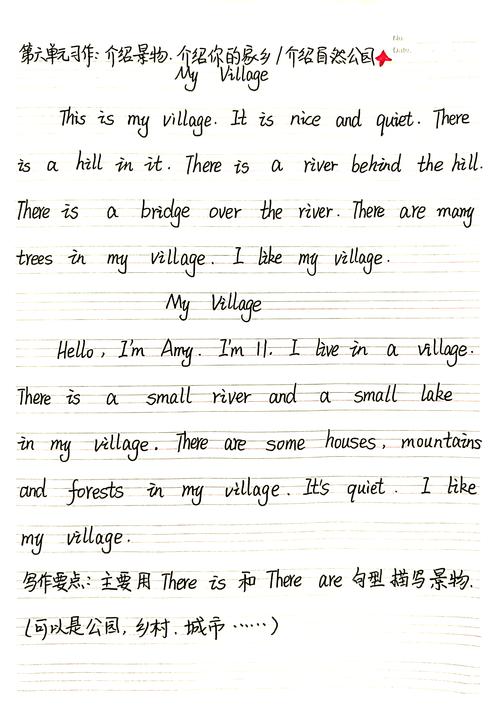 No.
Date.
第六单元习作: 介绍景物. 介绍你的家乡/介绍自然公园
My Village
This is my village. It is nice and quiet. There
is a hill in it. There is a river behind the hill.
There is a bridge over the river. There are many
trees in my village. I like my village.
My Village
Hello, I'm Amy. I'm 11. I live in a village.
There is a small river and a small lake
in my village. There are some houses, mountains
and forests in my village. It's quiet. I like
my village.
写作要点: 主要用 There is 和 There are 句型描写景物.
(可以是公园, 乡村. 城市……)